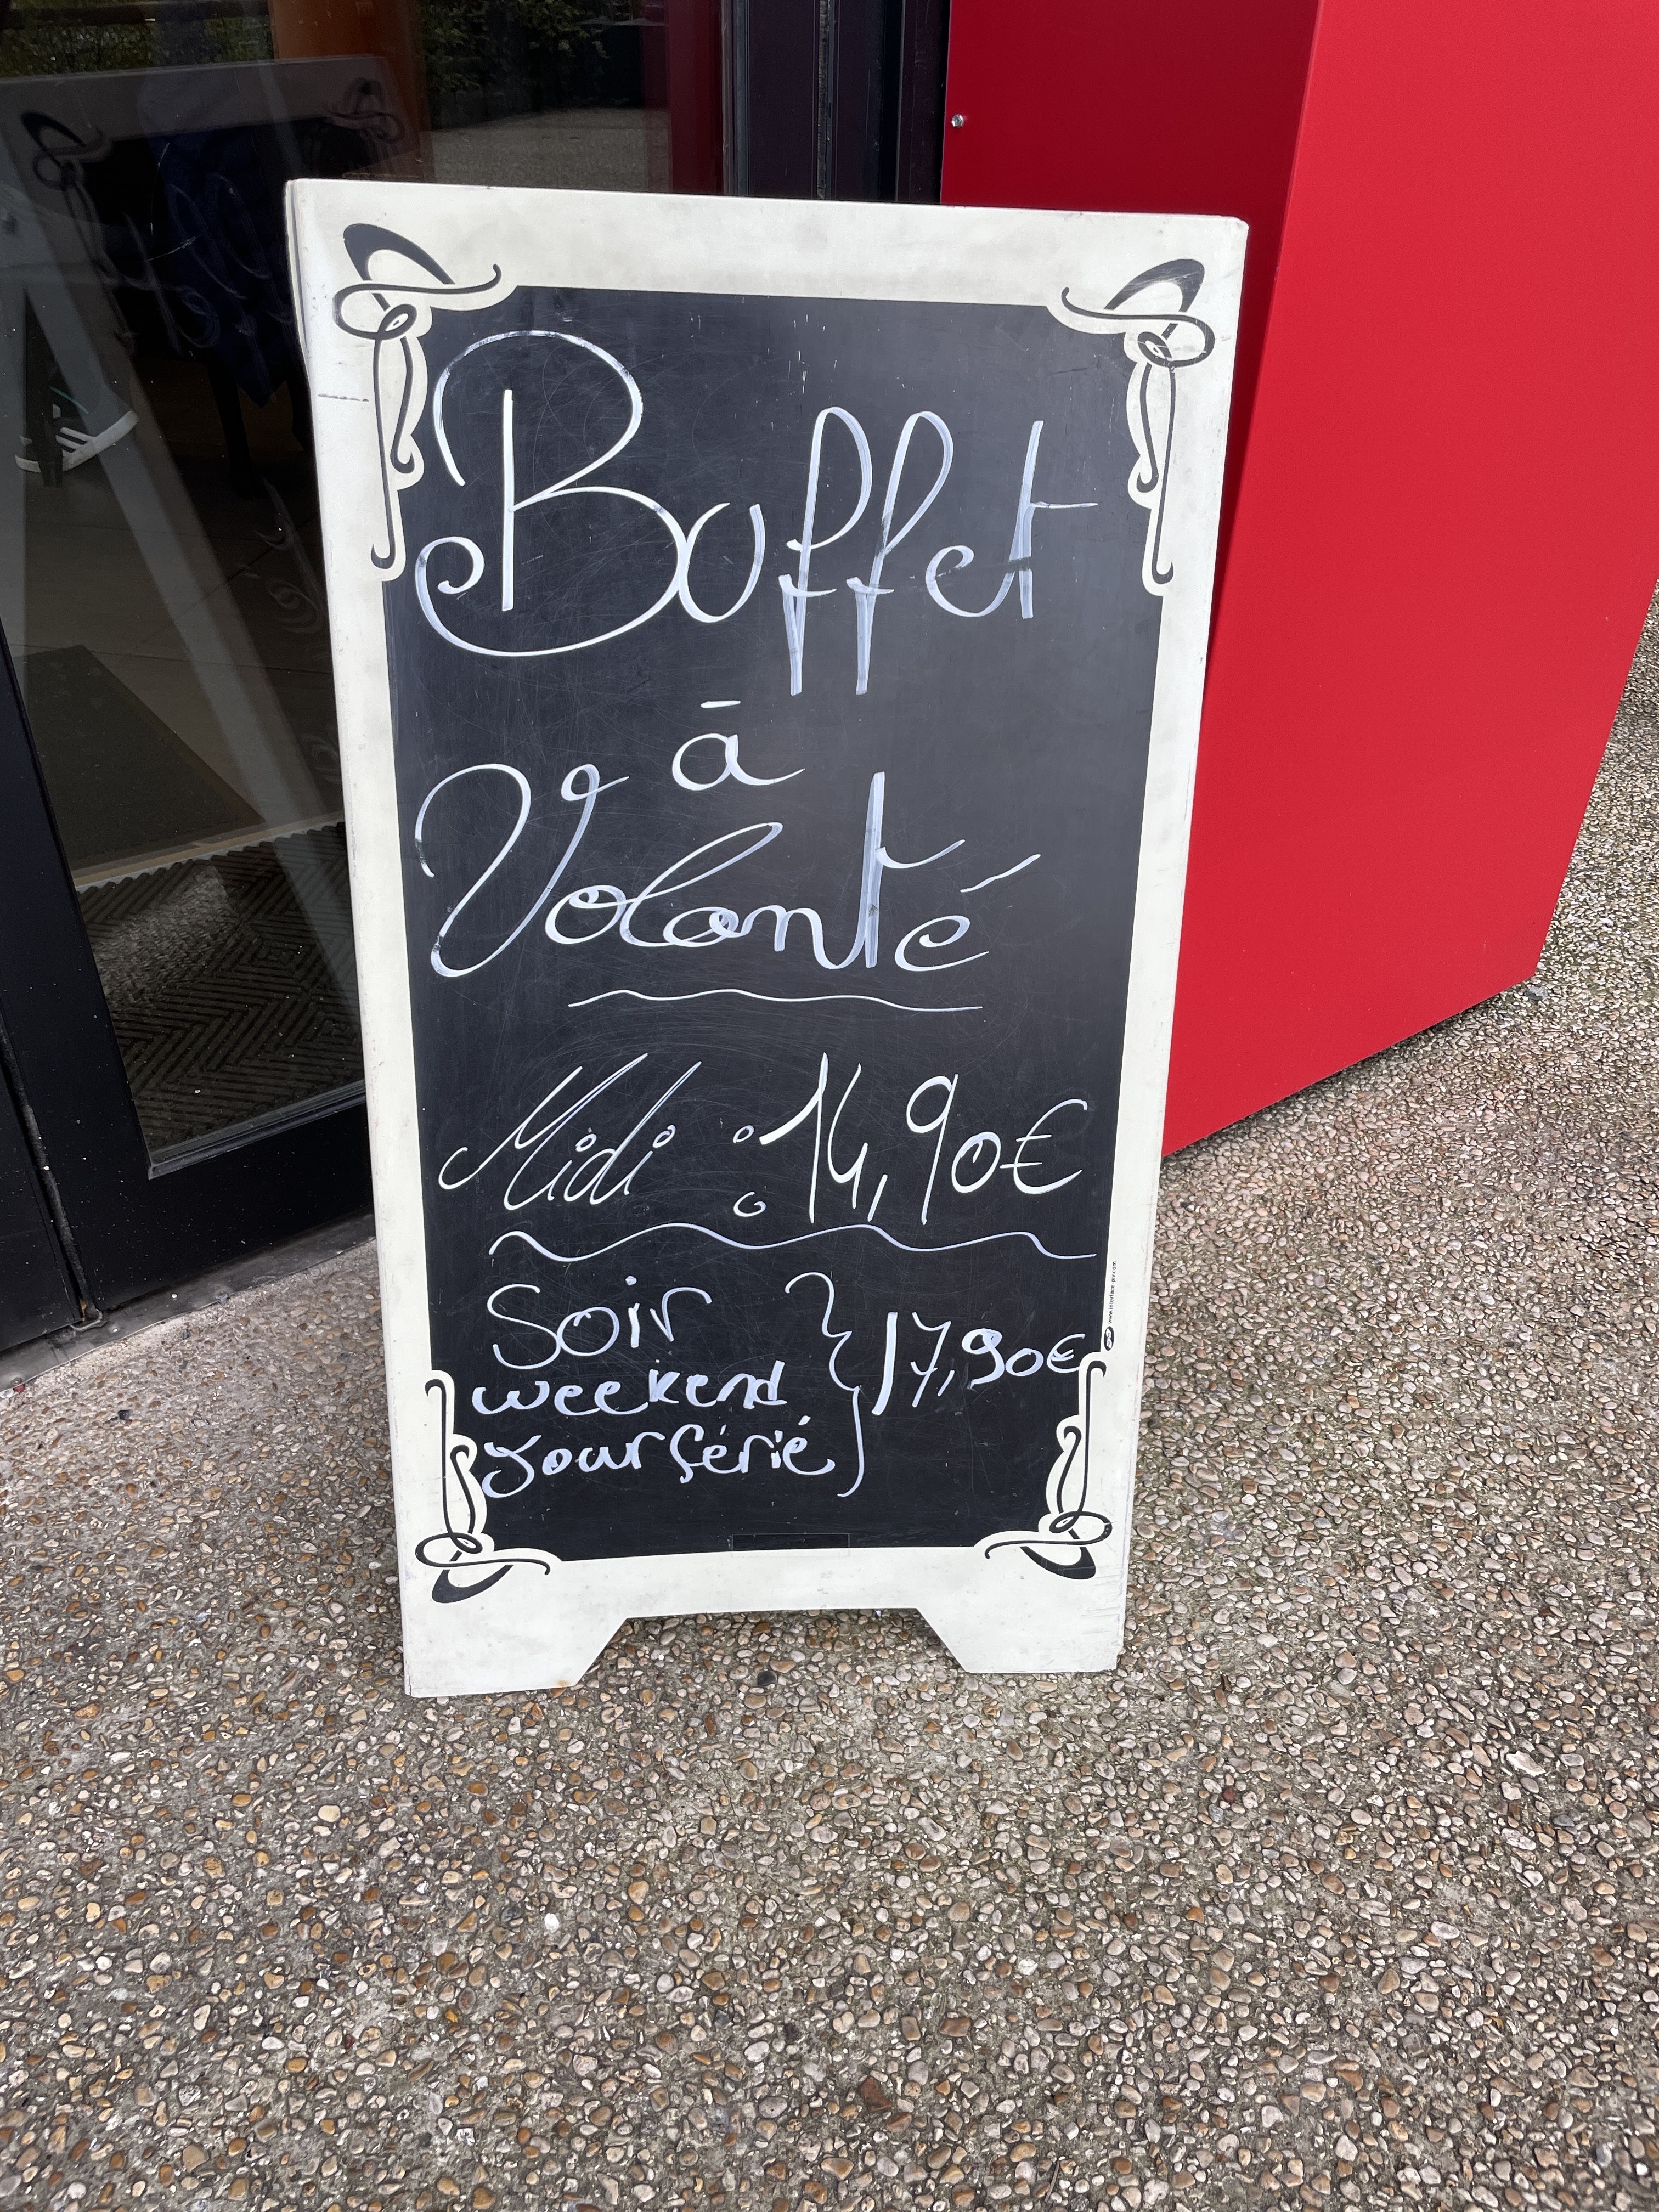 Buffet
à
Volonté
Midi : 14,90€
Soir
weekend
jour férié
} 17,90€
www.interface-plv.com